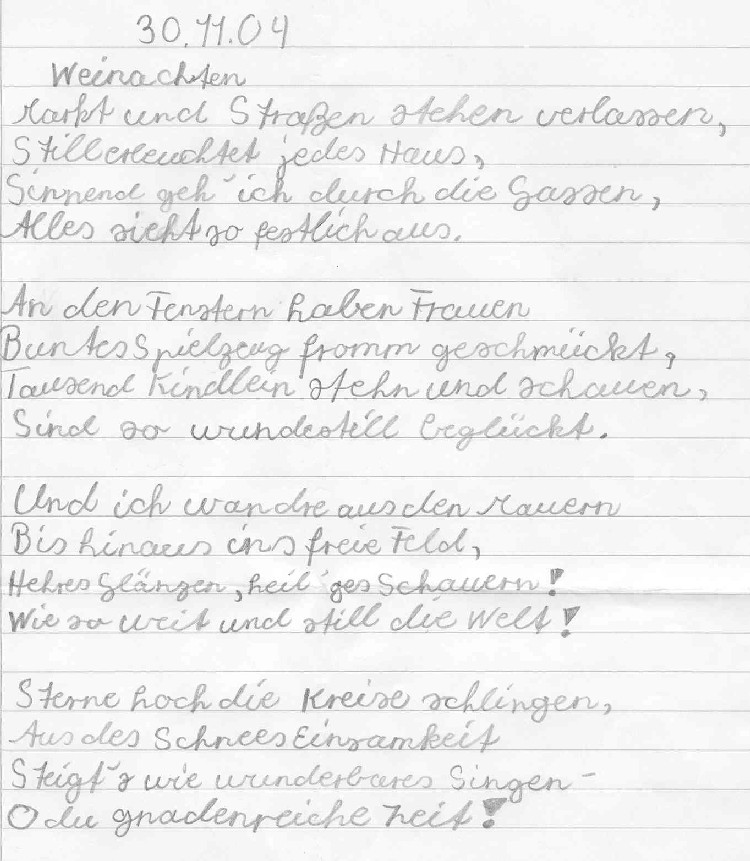 30.11.04
Weinachten
Markt und Straßen stehen verlassen,
Still erleuchtet jedes Haus,
Sinnend geh´ ich durch die Gassen,
Alles sieht so festlich aus.
An den Fenstern haben Frauen
Buntes Spielzeug fromm geschmückt,
Tausend Kindlein stehn und schauen,
Sind so wundestill beglückt.
Und ich wandre aus den Mauern
Bis hinaus ins freie Feld,
Hehres Glänzen, heil´ges Schauern!
Wie so weit und still die Welt!
Sterne hoch die Kreise schlingen,
Aus des Schnees Einsamkeit
Steigt´s wie wunderbares Singen-
O du gnadenreiche Zeit!